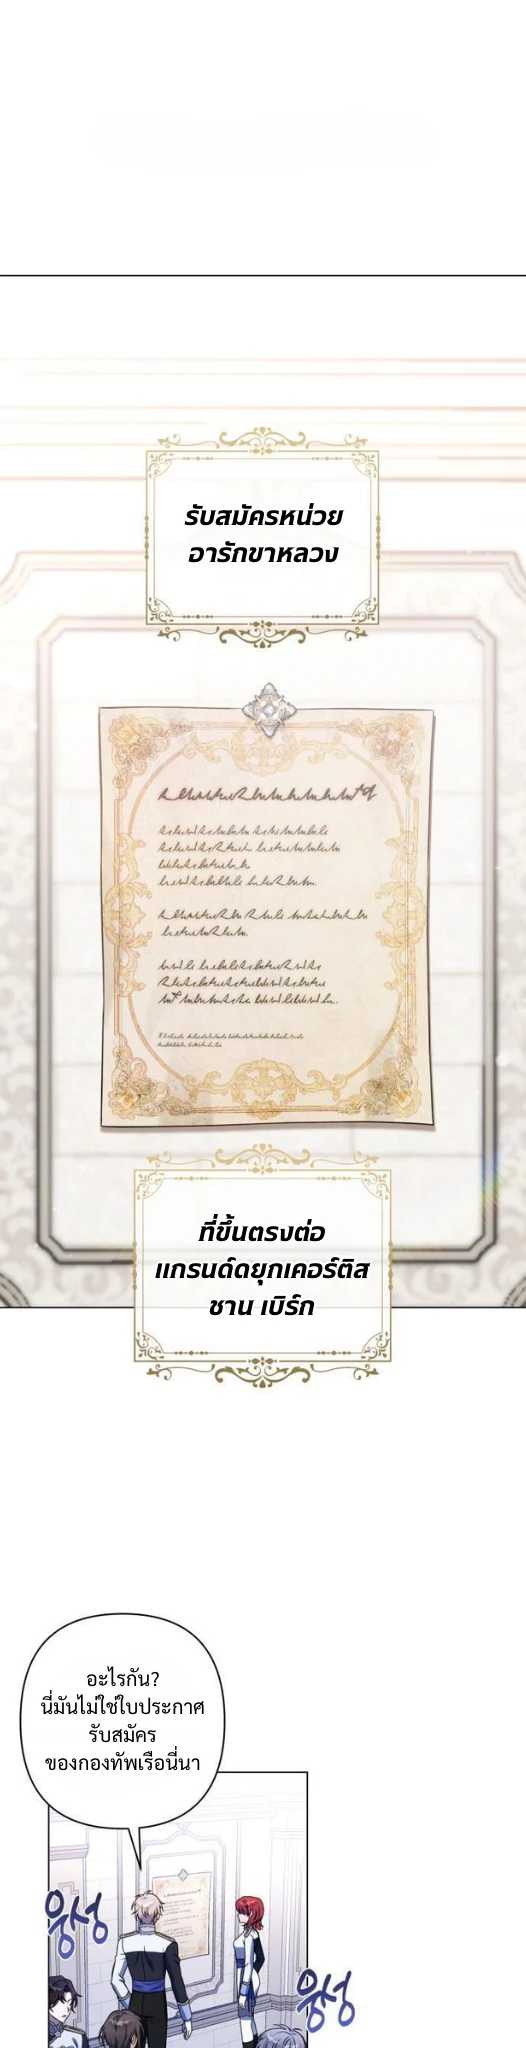 รับสมัครหน่วย
อารักขาหลวง
ที่ขึ้นตรงต่อ
แกรนด์ดยุกเคอร์ติส
ชาน เบิร์ก
อะไรกัน?
นี่มันไม่ใช่ใบประกาศ
รับสมัคร
ของกองทัพเรือนี่นา
웅성
웅성